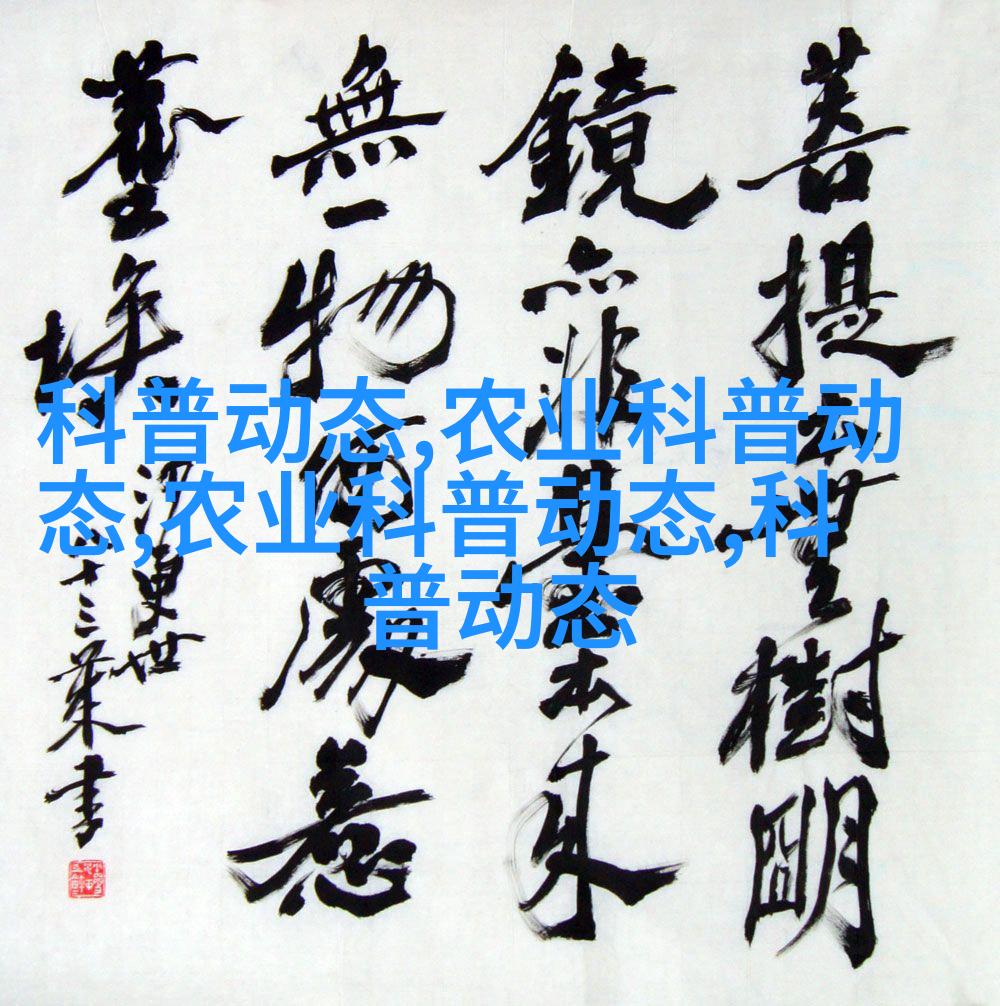 菩提本無樹明
鏡亦非臺本來
無一物何處惹
塵埃
十三葉書
科普动态,农业科普动
态,农业科普动态,科
普动态